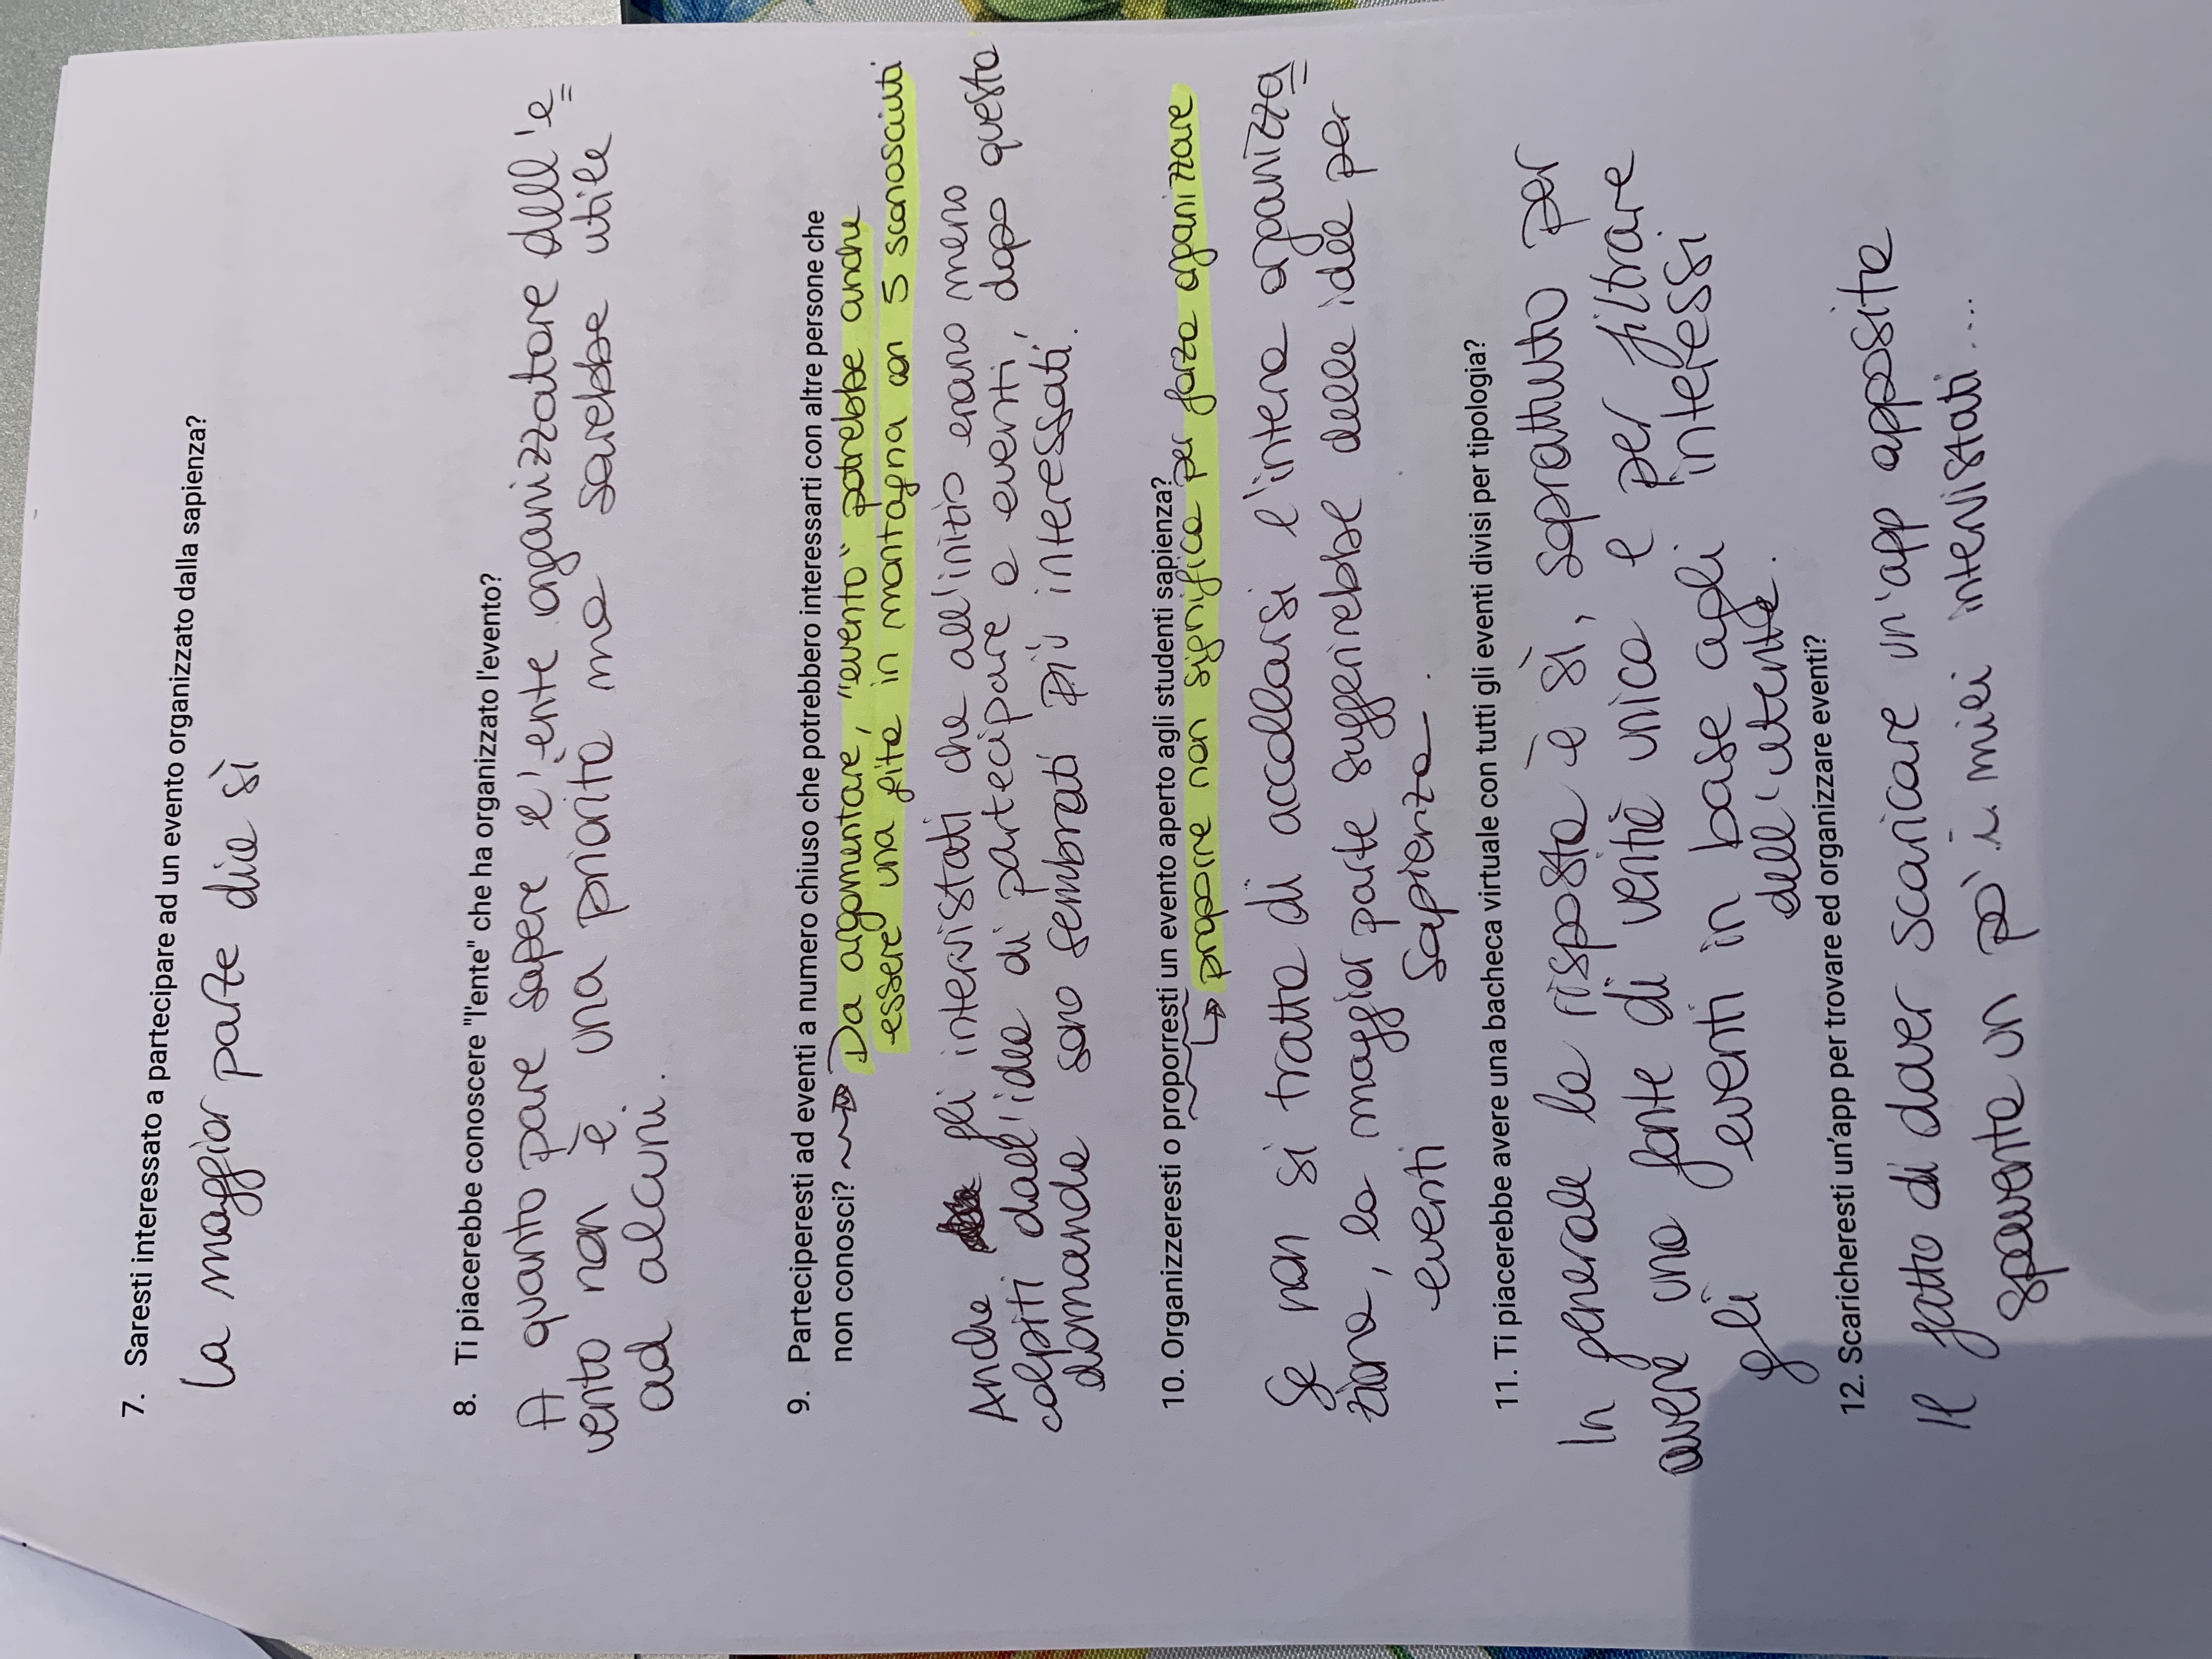 7. Saresti interessato a partecipare ad un evento organizzato dalla sapienza?
la maggior parte dice sì
8. Ti piacerebbe conoscere "l'ente" che ha organizzato l'evento?
A quanto pare sapere l'ente organizzatore dell'e
vento non è una priorità ma sarebbe utile
ad alcuni.
9. Parteciperesti ad eventi a numero chiuso che potrebbero interessarti con altre persone che
non conosci? Da argomentare, "evento" potrebbe anche
essere una gita in montagna con 5 sconosciuti
Anche gli intervistati che all'inizio erano meno
colpiti dall'idea di partecipare a eventi, dopo questa
domanda sono sembrati più interessati.
10. Organizzeresti o proporresti un evento aperto agli studenti sapienza?
proporre non significa per forza organizzare
Se non si tratta di accollarsi l'intera organizza
zione, la maggior parte suggerirebbe delle idee per
eventi Sapienza.
11. Ti piacerebbe avere una bacheca virtuale con tutti gli eventi divisi per tipologia?
In generale la risposta è sì, soprattutto per
avere una fonte di verità unica e per filtrare
gli eventi in base agli interessi
dell'utente.
12. Scaricheresti un'app per trovare ed organizzare eventi?
Il fatto di dover scaricare un'app apposita
spaventa un po' i miei intervistati....